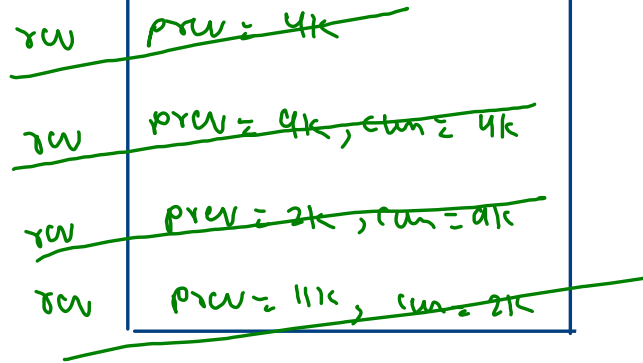 rev prev = 4k
rev prev = 9k, curr = 4k
rev prev = 2k, curr = 9k
rev prev = 11k, curr = 2k